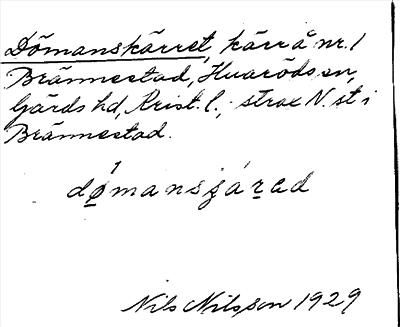 Dömanskärret, kärr å nr. 1
Brännestad, Huaröds sn,
Gärds hd, Krist. l.; strax N. st i
Brännestad.
1
dømansʃárad
Nils Nilsson 1929